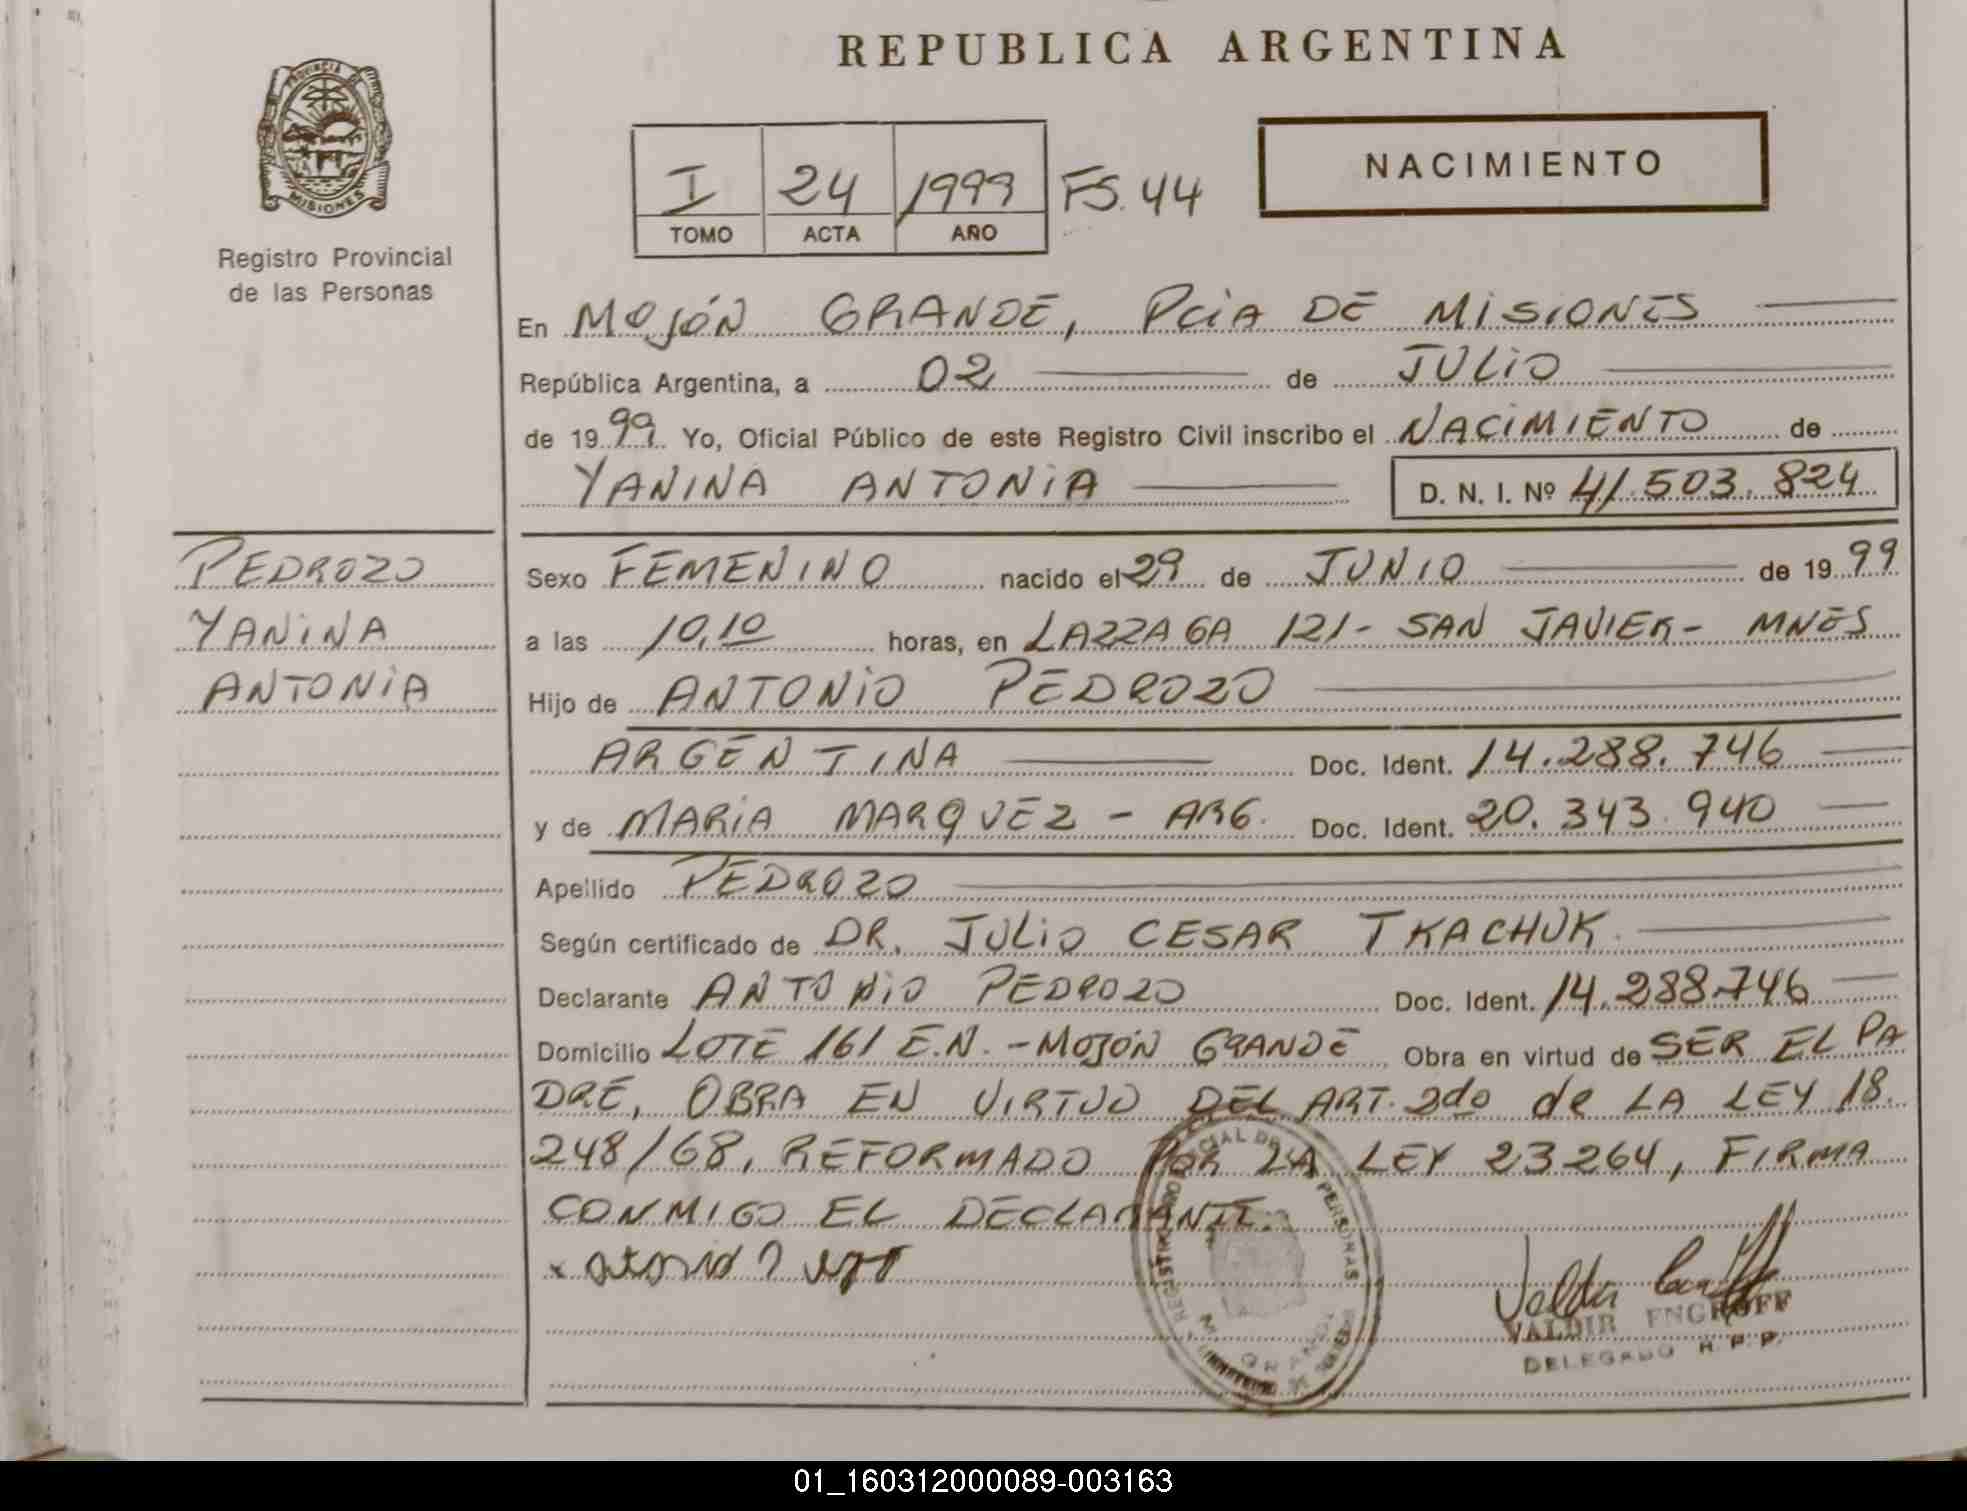 REPUBLICA ARGENTINA
PROVINCIA DE
MISIONES
Registro Provincial
de las Personas
I 24 1999 FS. 44
TOMO ACTA AÑO
NACIMIENTO
En MOJÓN GRANDE, PCIA DE MISIONES
República Argentina, a 02 de JULIO
de 19 99 Yo, Oficial Público de este Registro Civil inscribo el NACIMIENTO de
YANINA ANTONIA D. N. I. Nº 41.503.824
PEDROZO
YANINA
ANTONIA
Sexo FEMENINO nacido el 29 de JUNIO de 19 99
a las 10,10 horas, en LAZZAGA 121 - SAN JAVIER - MNES
Hijo de ANTONIO PEDROZO
ARGENTINA Doc. Ident. 14.288.746
y de MARIA MARQUEZ - ARG. Doc. Ident. 20.343.940
Apellido PEDROZO
Según certificado de DR. JULIO CESAR TKACHUK
Declarante ANTONIO PEDROZO Doc. Ident. 14.288.746
Domicilio LOTE 161 E.N. - MOJÓN GRANDE Obra en virtud de SER EL PA
DRE, OBRA EN VIRTUD DEL ART. 2do de LA LEY 18.
248/68, REFORMADO POR LA LEY 23264, FIRMA
CONMIGO EL DECLARANTE.
REGISTRO PROVINCIAL DE LAS PERSONAS
GRANDE
VALDIR ENGROFF
DELEGADO R. P. P.
01_160312000089-003163